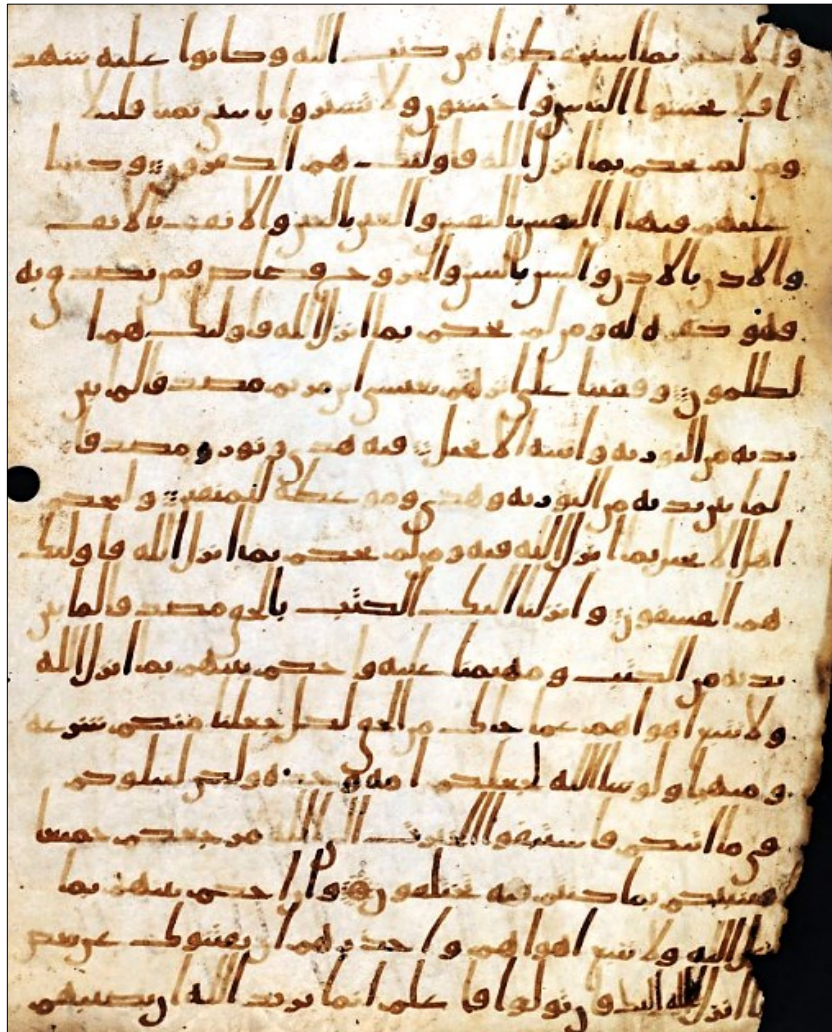 والاحبار بما استحفظوا من كتب الله وكانوا عليه شهد
ا فلا تخشوا الناس واخشون ولا تشتروا بايتي ثمنا قليلا
ومن لم يحكم بما انزل الله فاولئك هم الكفرون وكتبنا
عليهم فيها ان النفس بالنفس والعين بالعين والانف بالانف
والاذن بالاذن والسن بالسن والجروح قصاص فمن تصدق به
فهو كفره له ومن لم يحكم بما انزل الله فاولئك هم ا
لظلمون وقفينا على اثرهم بعيسى ابن مريم مصدقا لما بين
يديه من التوريه واتينه الانجيل فيه هدى ونور ومصدقا
لما بين يديه من التوريه وهدى وموعظه للمتقين وليحكم
اهل الانجيل بما انزل الله فيه ومن لم يحكم بما انزل الله فاولئك
هم الفسقون وانزلنا اليك الكتب بالحق مصدقا لما بين
يديه من الكتب ومهيمنا عليه فاحكم بينهم بما انزل الله
ولا تتبع اهواهم عما جاك من الحق لكل جعلنا منكم شرعه
ومنهاجا ولو شا الله لجعلكم امه وحده ولكن ليبلوكم
في ما اتيكم فاستبقوا الخيرت الى الله مرجعكم جميعا
فينبئكم بما كنتم فيه تختلفون وان احكم بينهم بما
انزل الله ولا تتبع اهواهم واحذرهم ان يفتنوك عن بعض
ما انزل الله اليك فان تولوا فاعلم انما يريد الله ان يصيبهم